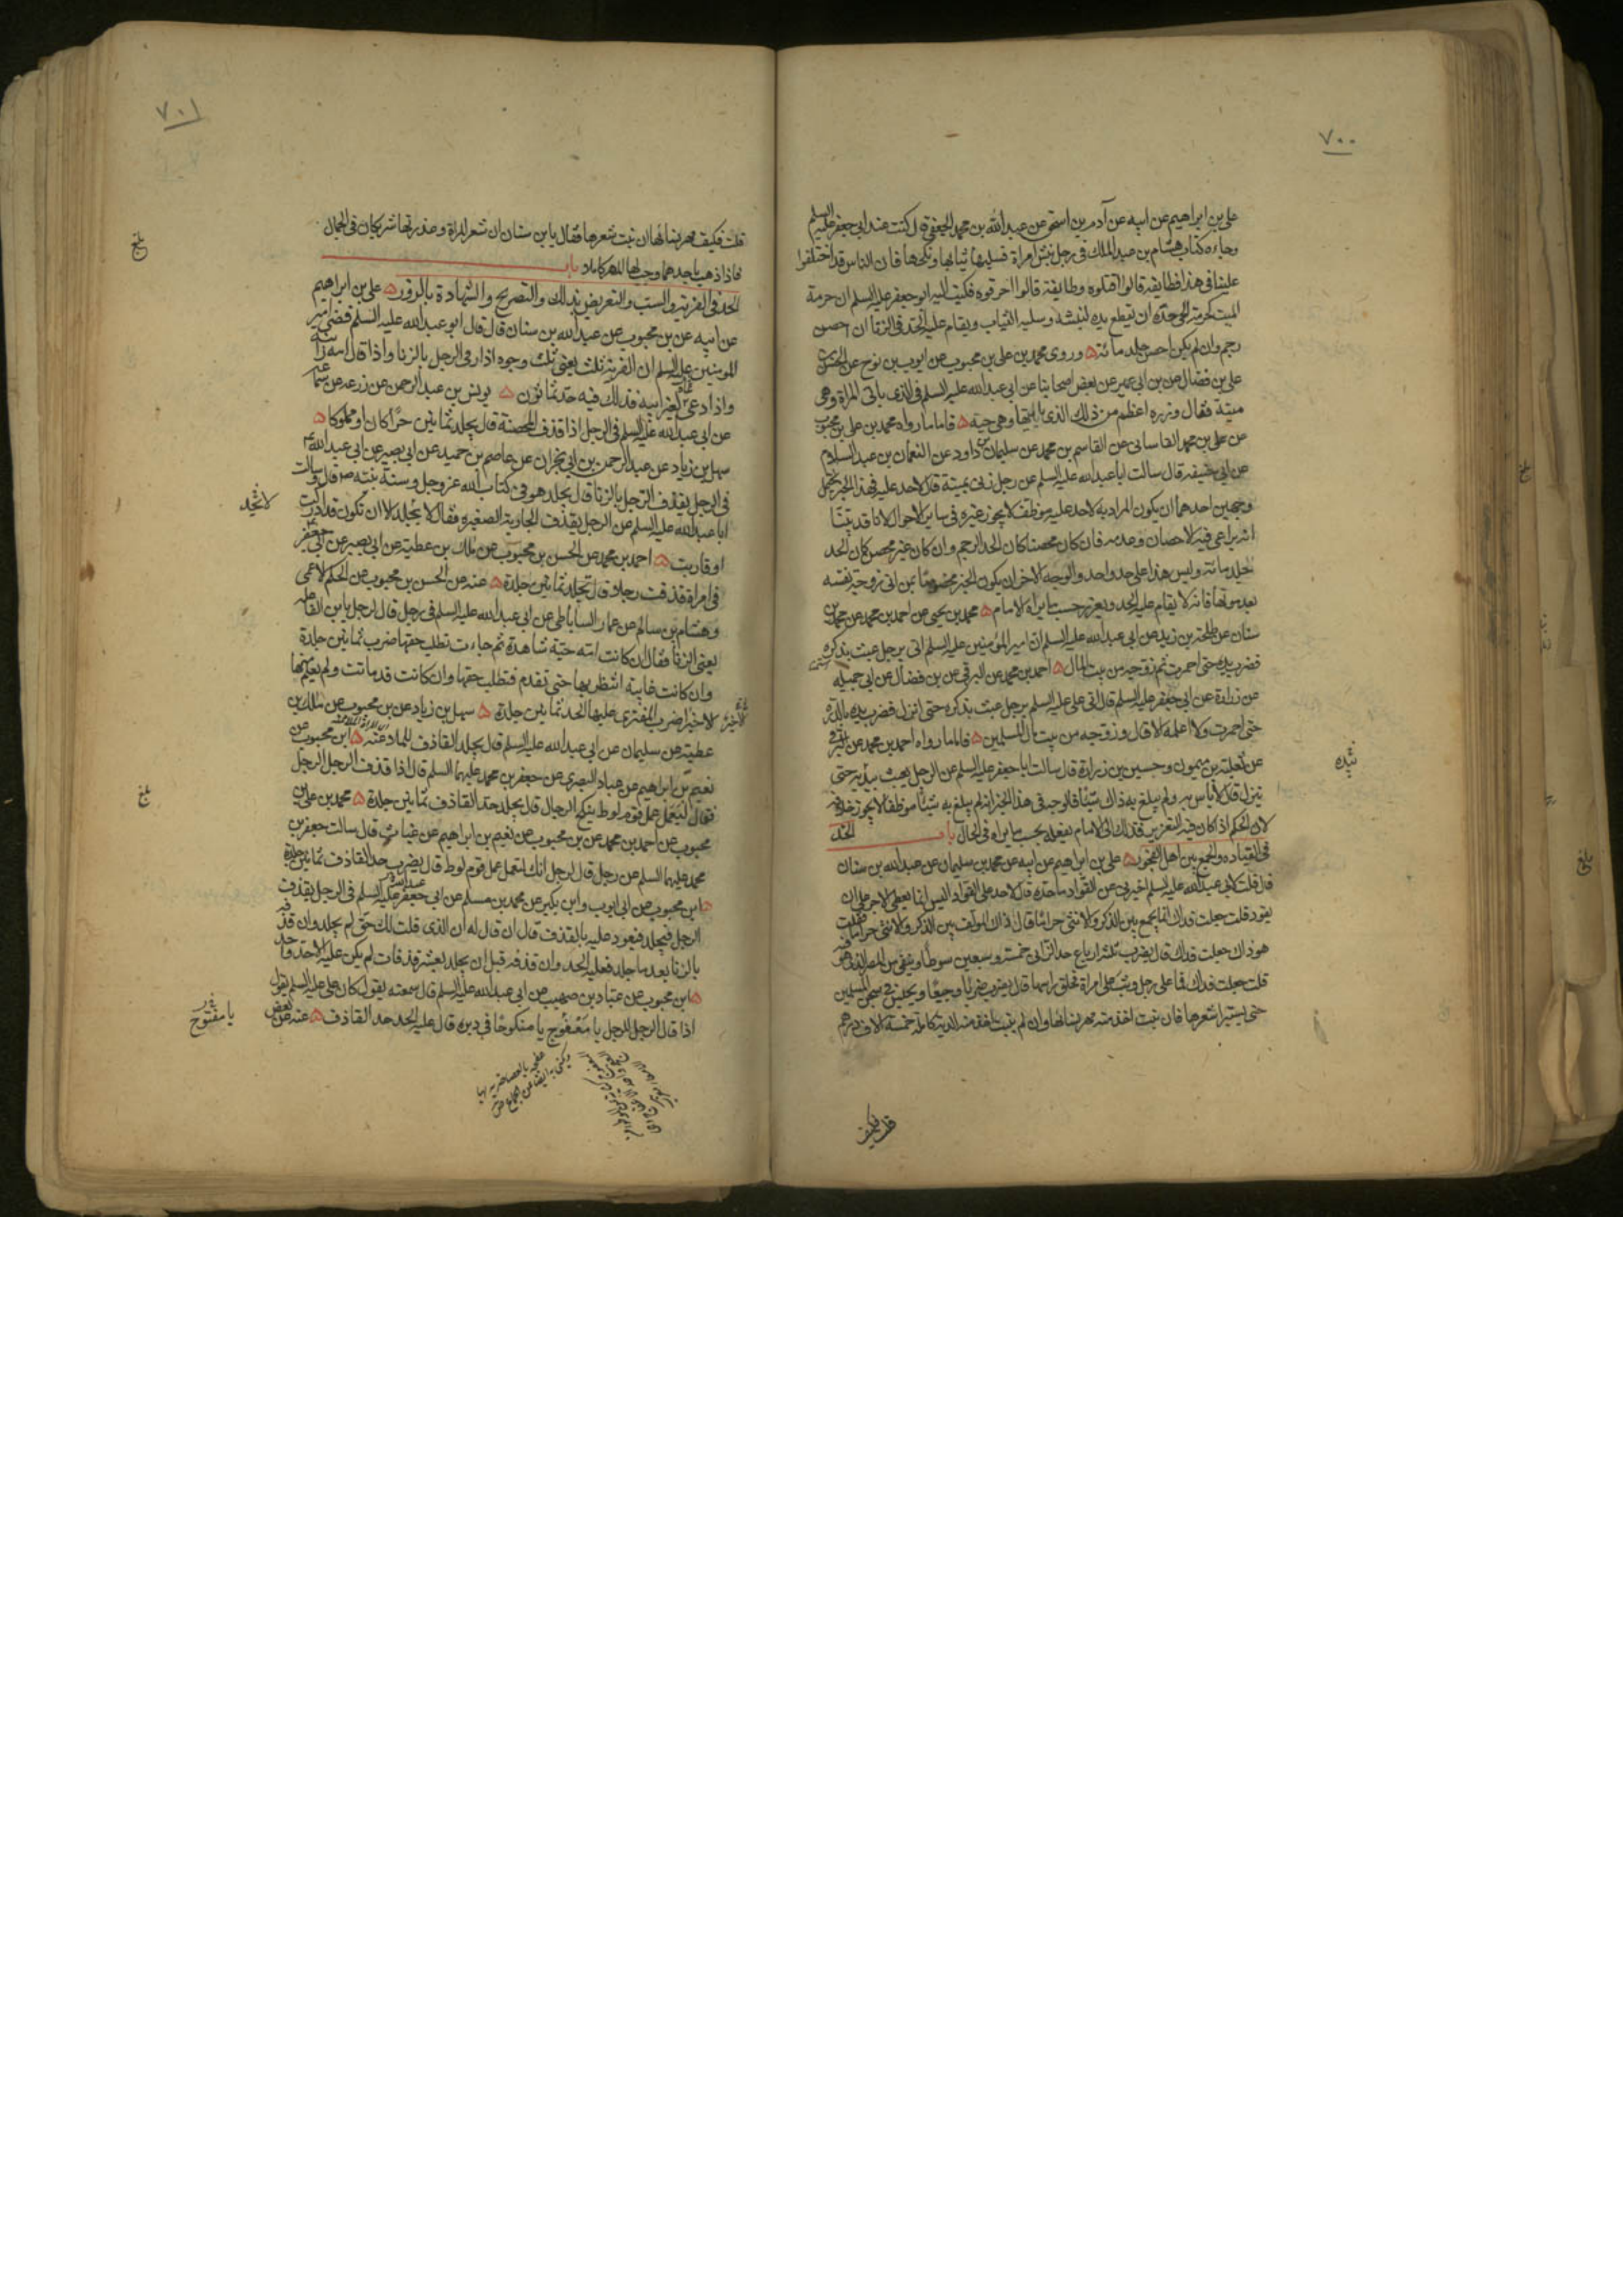 ٧٠٠
علي بن ابراهيم عن ابيه عن آدم بن اسحق عن عبد الله بن محمد الجعفي قال كنت عند ابي جعفر عليه السلم
وجاءه كتاب هشام بن عبد الملك في رجل نبش امراة فسلبها ثيابها ونكحها فان الناس قد اختلفوا
علينا في هذا فطايفة قالوا اقتلوه وطايفة قالوا احرقوه فكتب اليه ابو جعفر عليه السلم ان حرمة
الميت كحرمة الحي حده ان يقطع يده لنبشه وسلبه الثياب ويقام عليه الحد في الزنا ان احصن
رجم وان لم يكن احصن جلد مائة وروى محمد بن علي بن محبوب عن ايوب بن نوح عن الحسن بن
علي بن فضال عن بن ابي عمير عن بعض اصحابنا عن ابي عبد الله عليه السلم في الذي ياتي المراة وهي
ميتة فقال وزره اعظم من ذلك الذي ياتيها وهي حية فاما ما رواه محمد بن علي بن محبوب
عن علي بن محمد القاساني عن القاسم بن محمد عن سليمان بن داود عن النعمان بن عبد السلام
عن ابي حنيفة قال سالت ابا عبد الله عليه السلم عن رجل زنى بميتة قال لا حد عليه فهذا الخبر يحتمل
وجهين احدهما ان يكون المراد به لا حد عليه موظف لا يجوز غيره في ساير الاحوال لانا قد بينا
انه يراعى فيه الاحصان وعدمه فان كان محصنا كان الحد الرجم وان كان غير محصن كان الحد
الجلد مائة وليس هذا على حد واحد والوجه الاخر ان يكون الخبر مخصوصا بمن اتى زوجة نفسه
بعد موتها فانه لا يقام عليه الحد ويعزر حسب ما يراه الامام محمد بن يحيى عن احمد بن محمد عن محمد بن
سنان عن طلحة بن زيد عن ابي عبد الله عليه السلم ان امير المؤمنين عليه السلم اتي برجل عبث بذكره
فضرب يده حتى احمرت ثم زوجه من بيت المال احمد بن محمد عن البرقي عن بن فضال عن ابي جميلة
عن زرارة عن ابي جعفر عليه السلم قال اتي علي عليه السلم برجل عبث بذكره حتى انزل فضرب يده بالدرة
حتى احمرت ولا اعلمه الا قال وزوجه من بيت مال المسلمين فاما ما رواه احمد بن محمد عن البرقي
عن ثعلبة بن ميمون وحسين بن زرارة قال سالت ابا جعفر عليه السلم عن الرجل يعبث بيديه حتى
ينزل قال لا باس به ولم يبلغ به ذاك شيئا فالوجه في هذا الخبر انه لم يبلغ به شيئا موظفا لا يجوز خلافه
لان الحكم اذا كان فيه التعزير فذلك الى الامام يفعله بحسب ما يراه في الحال باب الحد
في القيادة والجمع بين اهل الفجور علي بن ابراهيم عن ابيه عن محمد بن سليمان عن عبد الله بن سنان
قال قلت لابي عبد الله عليه السلم اخبرني عن القواد ما حده قال لا حد على القواد اليس انما يعطى الاجر على ان
يقود قلت جعلت فداك انما يجمع بين الذكر والانثى حراما قال ذاك المولف بين الذكر والانثى حراما فقلت
هو ذاك جعلت فداك قال يضرب ثلثة ارباع حد الزاني خمسة وسبعين سوطا وينفى من المصر الذي هو فيه
قلت جعلت فداك فما على رجل وثب على امراة فحلق راسها قال يضرب ضربا وجيعا ويحبس في سجن المسلمين
حتى يستبرا شعرها فان نبت اخذ منه مهر نسائها وان لم ينبت اخذ منه الدية كاملة خمسة الاف درهم
قلت فكيف
٧٠١
قلت فكيف مهر نسائها ان نبت شعرها فقال يا بن سنان ان شعر المراة وعذرتها شريكان في الجمال
فاذا ذهب باحدهما وجب لها المهر كاملا باب
الحد في الفرية والسب والتعريض بذلك والتصريح والشهادة بالزور علي بن ابراهيم
عن ابيه عن بن محبوب عن عبد الله بن سنان قال قال ابو عبد الله عليه السلم قضى امير
المومنين عليه السلم ان الفرية ثلث يعني ثلث وجوه اذا رمى الرجل بالزنا واذا قال امه زانية
واذا دعى لغير ابيه فذلك فيه حد ثمانون يونس بن عبد الرحمن عن زرعة عن سماعة
عن ابي عبد الله عليه السلم في الرجل اذا قذف المحصنة قال يجلد ثمانين حرا كان او مملوكا
سهل بن زياد عن عبد الرحمن بن ابي نجران عن عاصم بن حميد عن ابي بصير عن ابي عبد الله ع
في الرجل يقذف الرجل بالزنا قال يجلد هو في كتاب الله عز وجل وسنة نبيه ص قال وسالت
ابا عبد الله عليه السلم عن الرجل يقذف الجارية الصغيرة فقال لا يجلد الا ان تكون قد ادركت
او قاربت احمد بن محمد عن الحسن بن محبوب عن ملك بن عطية عن ابي بصير عن ابي جعفر
في امراة قذفت رجلا قال تجلد ثمانين جلدة عنه عن الحسن بن محبوب عن الحكم الاعمى
وهشام بن سالم عن عمار الساباطي عن ابي عبد الله عليه السلم في رجل قال لرجل يا بن الفاعلة
يعني الزنا فقال ان كانت امه حية شاهدة ثم جاءت تطلب حقها ضرب ثمانين جلدة
وان كانت غايبة انتظر بها حتى تقدم فتطلب حقها وان كانت قد ماتت ولم يعلم منها
الا خير الا خيرا ضرب المفتري عليها الحد ثمانين جلدة سهل بن زياد عن بن محبوب عن ملك بن
عطية عن سليمان عن ابي عبد الله عليه السلم قال يجلد القاذف للملاعنة ابن محبوب عن
نعيم بن ابراهيم عن عباد البصري عن جعفر بن محمد عليهما السلم قال اذا قذف الرجل الرجل
فقال ليعمل عمل قوم لوط ينكح الرجال قال يجلد حد القاذف ثمانين جلدة محمد بن علي بن
محبوب عن احمد بن محمد عن بن محبوب عن نعيم بن ابراهيم عن غياث قال سالت جعفر بن
محمد عليهما السلم عن رجل قال لرجل انك لتعمل عمل قوم لوط قال يضرب حد القاذف ثمانين جلدة
ابن محبوب عن ابي ايوب وابن بكير عن محمد بن مسلم عن ابي جعفر عليه السلم في الرجل يقذف
الرجل فيجلد فيعود عليه بالقذف قال ان قال له ان الذي قلت لك حق لم يجلد وان قذفه
بالزنا بعد ما جلد فعليه الحد وان قذفه قبل ان يجلد بعشر قذفات لم يكن عليه الا حد واحد
ابن محبوب عن عباد بن صهيب عن ابي عبد الله عليه السلم قال سمعته يقول كان علي عليه السلم يقول
اذا قال الرجل للرجل يا معفوج يا منكوحا في دبره قال عليه الحد حد القاذف عنه عن بعض
بلغ
لا تجلد
بلغ
يا مفتوح
بيده
بلغ